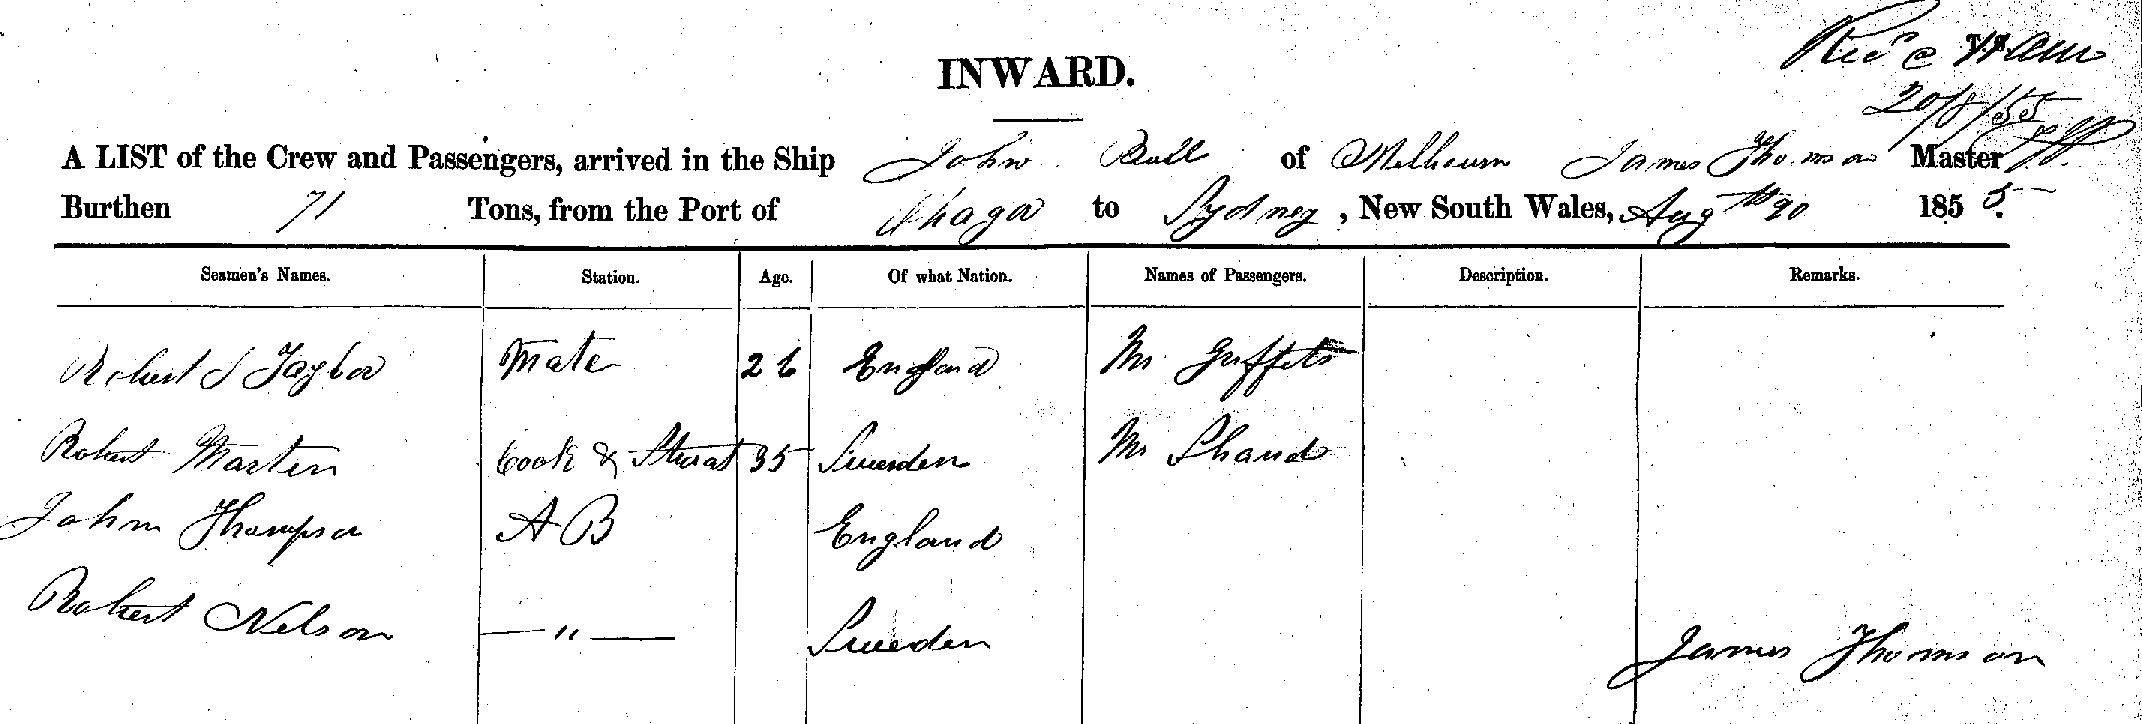 Recd @
INWARD.
20/8/55
A LIST of the Crew and Passengers, arrived in the Ship John Bull of Melbourn James Thomson Master
Burthen 71 Tons, from the Port of to Sydney, New South Wales, Augth 20 1855.
Seamen's Names. Station. Age. Of what Nation. Names of Passengers. Description. Remarks.
Robert S Taylor Mate 26 England Mr Griffets
Robert Marten Cook & Stuart 35 Sweeden Mr Shand
John Thompson A B England
Robert Nelson — " — Sweeden
James Thomson